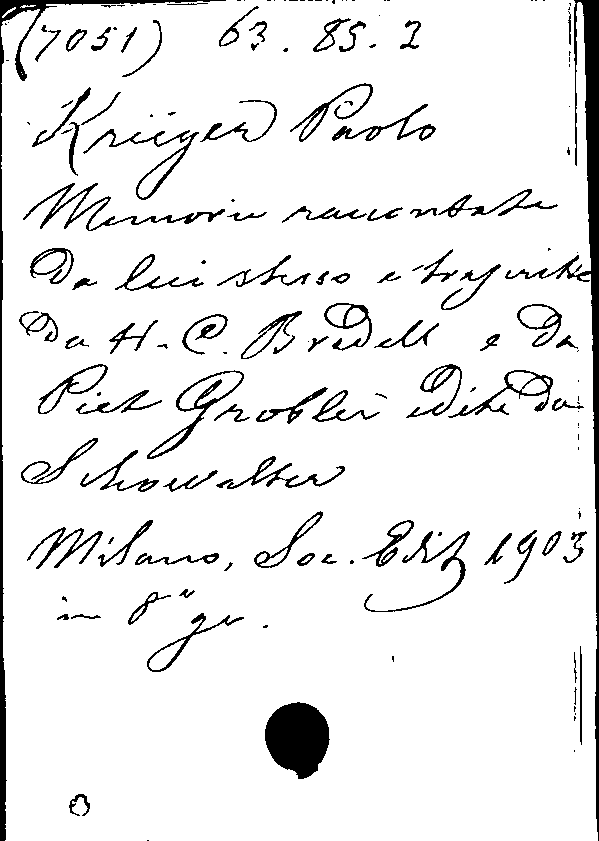 (7051) 63.85.2
Krüger Paolo
Memorie raccontate
da lui stesso e trascritte
da H. C. Bredell e da
Piet Grobler edite da
Schowalter
Milano, Soc. Edit 1903
in 8° gr.